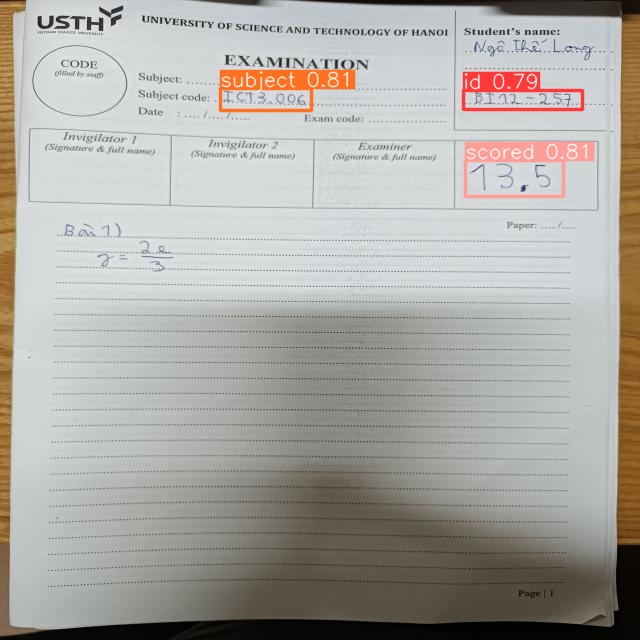 USTH
VIETNAM FRANCE UNIVERSITY
UNIVERSITY OF SCIENCE AND TECHNOLOGY OF HANOI
Student's name:
Ngô Thế Long
CODE
(filled by staff)
EXAMINATION
Subject: ........ subject 0.81
id 0.79
Subject code: ICT3.006
BI12-257
Date : ..../..../.....
Exam code: ...........
Invigilator 1
(Signature & full name)
Invigilator 2
(Signature & full name)
Examiner
(Signature & full name)
scored 0.81
13.5
Paper: ..../....
Bài 1)
γ = 2e/3
Page | 1